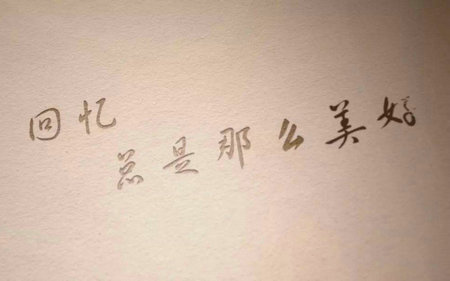 回忆
总是那么美好